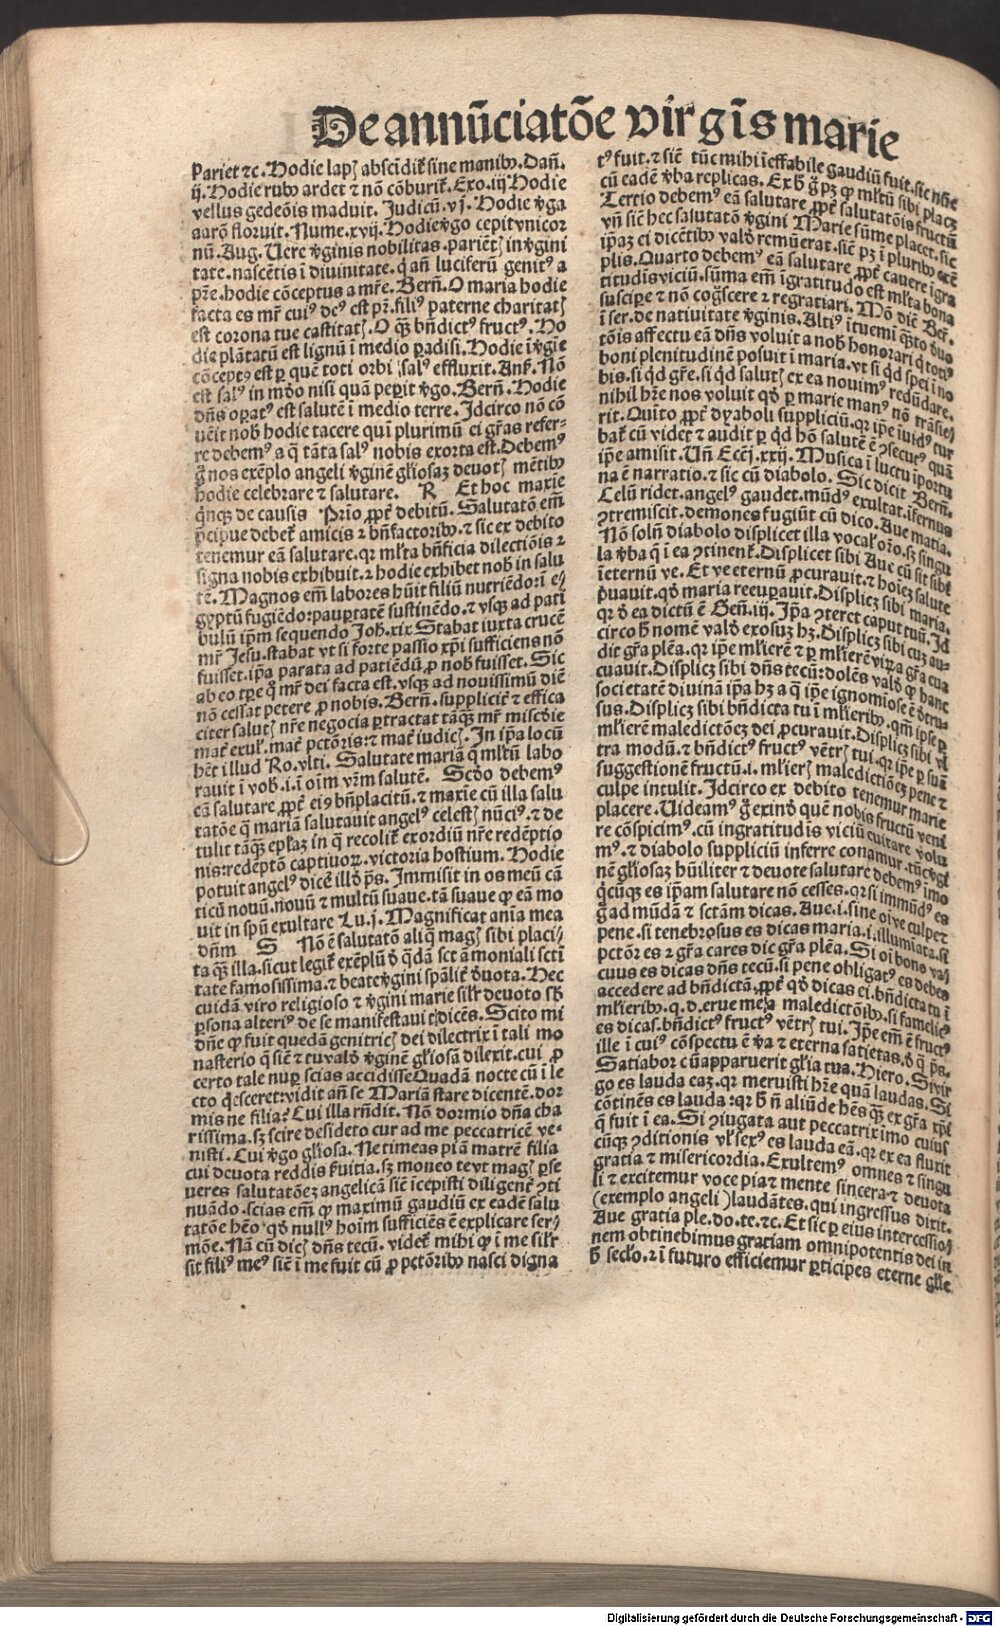 De annūciatõe virgĩs marie
Pariet ⁊c. Hodie lapꝭ abscīdit̃ sine manibꝰ. Dañ.
ij. Hodie rubꝰ ardet ⁊ nõ cõburit̃. Exo. iij Hodie
vellus gedeõis maduit. Judicū. vj. Hodie v̾ga
aarõ floruit. Nume. xvij. Hodie v̾go cepit vnicor
nū. Aug. Uere v̾ginis nobilitas. pariēt̃ in v̾gini
tate. nascētis ī diuinitate. q̃ añ luciferū genitꝰ a
pr̃e. hodie cõceptus a mr̃e. Berñ. O maria hodie
facta es mr̃ cuiꝰ deꝰ est pr̃. filiꝰ paterne charitatꝭ
est corona tue castitatꝭ. O q̃ꝫ bñdictꝰ fructꝰ. Ho
die plãtatū est lignū ī medio ꝑadisi. Hodie ī v̾gīe
cõceptꝰ est ꝑ quē toti orbi salꝰ effluxit. Anẜ. Nõ
est salꝰ in mũdo nisi quã peꝑit v̾go. Berñ. Hodie
dñs oꝑatꝰ est salutē ī medio terre. Jdcirco nõ cõ
uēit nob̃ hodie tacere qui plurimū ei gr̃as refer-
re debemꝰ a q̃ tãta salꝰ nobis exorta est. Debemꝰ
g̃ nos exēplo angeli v̾ginē gl̃iosaꝫ deuotꝭ mētibꝰ
hodie celebrare ⁊ salutare. R Et hoc maxīe
q̃nqꝫ de causis Prīo ꝓpt̃ debitū. Salutatõ em̃
p̃cipue debet̃ amicis ⁊ bñfactoribꝰ. ⁊ sic ex debito
tenemur eã salutare. qꝛ ml̃ta bñficia dilectiõis ⁊
signa nobis exhibuit. ⁊ hodie exhibet nob̃ in salu
tē. Magnos em̃ labores hũit filiū nutriēdo: ī e-
gyptū fugiēdo: pauꝑtatē sustinēdo. ⁊ vsqꝫ ad pati
bulū ip̃m sequendo Joh̃. xix Stabat iuxta crucē
mr̃ Jesu. stabat vt si forte passio xp̃i sufficiens nõ
fuisset. ip̃a parata ad patiēdū ꝓ nob̃ fuisset. Sic
ab eo tꝑe q̃ mr̃ dei facta est. vsqꝫ ad nouissimū diē
nõ cessat petere ꝓ nobis. Berñ. supplicit̃ ⁊ effica
citer salutꝭ nr̃e negocia ꝑtractat tãqꝫ mr̃ miscõie
mat̃ exul̃. mat̃ pctõris: ⁊ mat̃ iudicꝭ. In ip̃a locū
hēt illud Ro. vlti. Salutate mariã q̃ ml̃tū labo
rauit ī vob̃. i. ī oīm vr̃m salutē. Scdo debemꝰ
eã salutare ꝓpt̃ eiꝰ bñplacitū. ⁊ maxīe cū illa salu
tatõe q̃ mariã salutauit angelꝰ celestꝭ nũciꝰ. ⁊ de
tulit tãqꝫ ep̃laꝫ in q̃ recolit̃ exordiū nr̃e redēptio
nis: redēptõ captiuoꝝ. victoria hostium. Hodie
potuit angelꝰ dicē illõ p̃s. Jmmisit in os meū cã
ticū nouū. nouū ⁊ multū suaue. tã suaue ꝙ eã mo
uit in spũ exultare Lu. j. Magnificat anīa mea
dñm S Nõ ē salutatõ aliq̃ magꝭ sibi placi-
ta q̃ꝫ illa. sicut legit̃ exēplū ð q̃dã sct̃a moniali sctī
tate famosissima. ⁊ beate v̾gini spãlit̃ ðuota. Hec
cuidã viro religioso ⁊ v̾gini marie sil̃r deuoto sb̃
ꝑsona alteriꝰ de se manifestauit dicēs. Scito mi
dñe ꝙ fuit quedã genitricꝭ dei dilectrix ī tali mo
nasterio q̃ siē ⁊ tu valð v̾ginē gl̃iosã dilexit. cui ꝓ
certo tale nuꝑ scias accidisse Quadã nocte cū ī le
cto q̃esceret: vidit añ se Mariã stare dicentē. dor
mis ne filia? Cui illa rñdit. Nõ dormio dña cha
rissima. sꝫ scire desidero cur ad me peccatricē ve-
nisti. Cui v̾go gl̃iosa. Ne timeas piã matrē filia
cui deuota reddis ẜuitia. sꝫ moneo te vt magꝭ ꝑse
ueres salutatõeꝫ angelicã siē īcepisti diligent̃ ꝯti
nuãdo. scias em̃ ꝙ maximū gaudiū ex eadē salu
tatõe hēo qð nullꝰ hoīm sufficiēs ē explicare ser-
mõe. Nã cū dicꝭ dñs tecū. videt̃ mihi ꝙ ī me sil̃r
sit filiꝰ meꝰ siē ī me fuit cū ꝓ pctõribꝰ nasci digna
tꝰ fuit. ⁊ siē tūc mihi īeffabile gaudiū fuit. sic nũc
cū eadē v̾ba replicas. Ex h̃ g̃ pꝫ ꝙ ml̃tū sibi placꝫ
Tertio debemꝰ eã salutare ꝓpt̃ salutatõis fructū
vñ siē hec salutatõ v̾gini Marie sūme placet. sic
ip̃aꝫ ei dicētibꝰ valð remūerat. siē pꝫ ī pluribꝰ exē
plis. Quarto debemꝰ eã salutare ꝓpt̃ cauere īgra
titudīs viciū. sūma em̃ īgratitudo est ml̃ta bona
suscipe ⁊ nõ cog̃scere ⁊ regratiari. Mõ diē Ber̃.
ī ser. de natiuitate v̾ginis. Altiꝰ ītuemī q̃ꝫto ðuo
tõis affectu eã dñs voluit a nob̃ honorari q̃ totiꝰ
boni plenitudinē posuit ī maria. vt si qd̃ spei ī no
bis. si qd̃ gr̃e. si qd̃ salutꝭ ex ea nouimꝰ redūdare.
nihil hr̃e nos voluit qð ꝑ marie manꝰ nõ trãsie-
rit. Quīto ꝓpt̃ dyaboli suppliciū. qꝛ ip̃e īuidꝰ tur
bat̃ cū videt ⁊ audit ꝑ qd̃ hõ salutē ē ꝯsecutꝰ quã
ip̃e amisit. Uñ Eccī. xxij. Musica ī luctu īportu
na ē narratio. ⁊ sic cū diabolo. Sic dicit Berñ.
Celū ridet. angelꝰ gaudet. mũdꝰ exultat. īfernus
ꝯtremiscit. demones fugiūt cū dico. Aue maria.
Nõ solū diabolo displicet illa vocal̃ or̃o. sꝫ singu
la v̾ba q̃ ī ea ꝯtinent̃. Displicet sibi Aue cū sit sibi
īeternū ve. Et ve eternū ꝓcurauit. ⁊ hoīeꝫ salute
ð̃uauit. qð maria recuꝑauit. Displicꝫ sibi maria.
qꝛ ð ea dictū ē Geñ. iij. Jp̃a ꝯteret caput tuū. Jd
circo h̃ nomē valð exosuꝫ hꝫ. Displicꝫ sibi cuꝫ au-
dit gr̃a plēa. qꝛ ip̃e ml̃ierē ⁊ ꝑ ml̃ierē virꝝ a gr̃a eua
cuauit. Displicꝫ sibi dñs tecū: dolēs valð ꝙ hanc
societatē diuinã ip̃a hꝫ a q̃ ip̃e ignomīose ē ðtru
sus. Displicꝫ sibi bñdicta tu ī ml̃ieribꝰ. qm̃ ip̃e ꝑ
ml̃ierē maledictõeꝫ dei ꝓcurauit. Displicꝫ sibi vl̃
tra modū. ⁊ bñdictꝰ fructꝰ vētrꝭ tui. qꝛ ip̃e ꝑ suã
suggestionē fructū. i. ml̃ierꝭ maledictiõeꝫ pene ⁊
culpe intulit. Jdcirco ex debito tenemur marie
placere. Uideamꝰ g̃ exīnð quē nobis fructū veni
re cõspicimꝰ. cū ingratitudīs viciū euitare volu
mꝰ. ⁊ diabolo suppliciū inferre conamur. tūc v̾gi
nē gl̃iosaꝫ hūiliter ⁊ deuote salutare debemꝰ imo
q̃cūqꝫ es ip̃am salutare nõ cesses. qꝛ si immūdꝰ es
g̃ ad mũdã ⁊ sctãm dicas. Aue. i. sine oī ve culpe ⁊
pene. si tenebrosus es dicas maria. i. illumiata. si
pctõr es ⁊ gr̃a cares dic gr̃a plēa. Si oī bono va-
cuus es dicas dñs tecū. si pene obligatꝰ es debes
accedere ad bñdictã. ꝓpt̃ qð dicas ei. bñdicta tu ī
ml̃ieribꝰ. q. d. erue me a maledictõibꝰ. si famelicꝰ
es dicas. bñdictꝰ fructꝰ vētrꝭ tui. Jp̃e em̃ ē fructꝰ
ille ī cuiꝰ cõspectu ē v̾a ⁊ eterna satietas. ð q̃ p̃s.
Satiabor cū apparuerit gl̃ia tua. Hiero. Si vir
go es lauda eaꝫ. qꝛ meruisti hr̃e quã laudas. Si
cõtinēs es lauda: qꝛ h̃ ñ aliūde hēs q̃ꝫ ex gr̃a xp̃i
q̃ fuit ī ea. Si ꝯiugata aut peccatrix imo cuius
cūqꝫ ꝯditionis vl̃ sexꝰ es lauda eã. qꝛ ex ea fluxit
gratia ⁊ misericordia. Exultemꝰ omnes ⁊ singu
li ⁊ excitemur voce pia ⁊ mente sincera ⁊ deuota
(exemplo angeli) laudãtes. qui ingressus dixit.
Aue gratia ple. do. te. ⁊c. Et sic ꝑ eius intercessio-
nem obtinebimus gratiam omnipotentis dei in
h̃ secl̃o. ⁊ ī futuro efficiemur ꝑticipes eterne gl̃ie
Digitalisierung gefördert durch die Deutsche Forschungsgemeinschaft - DFG